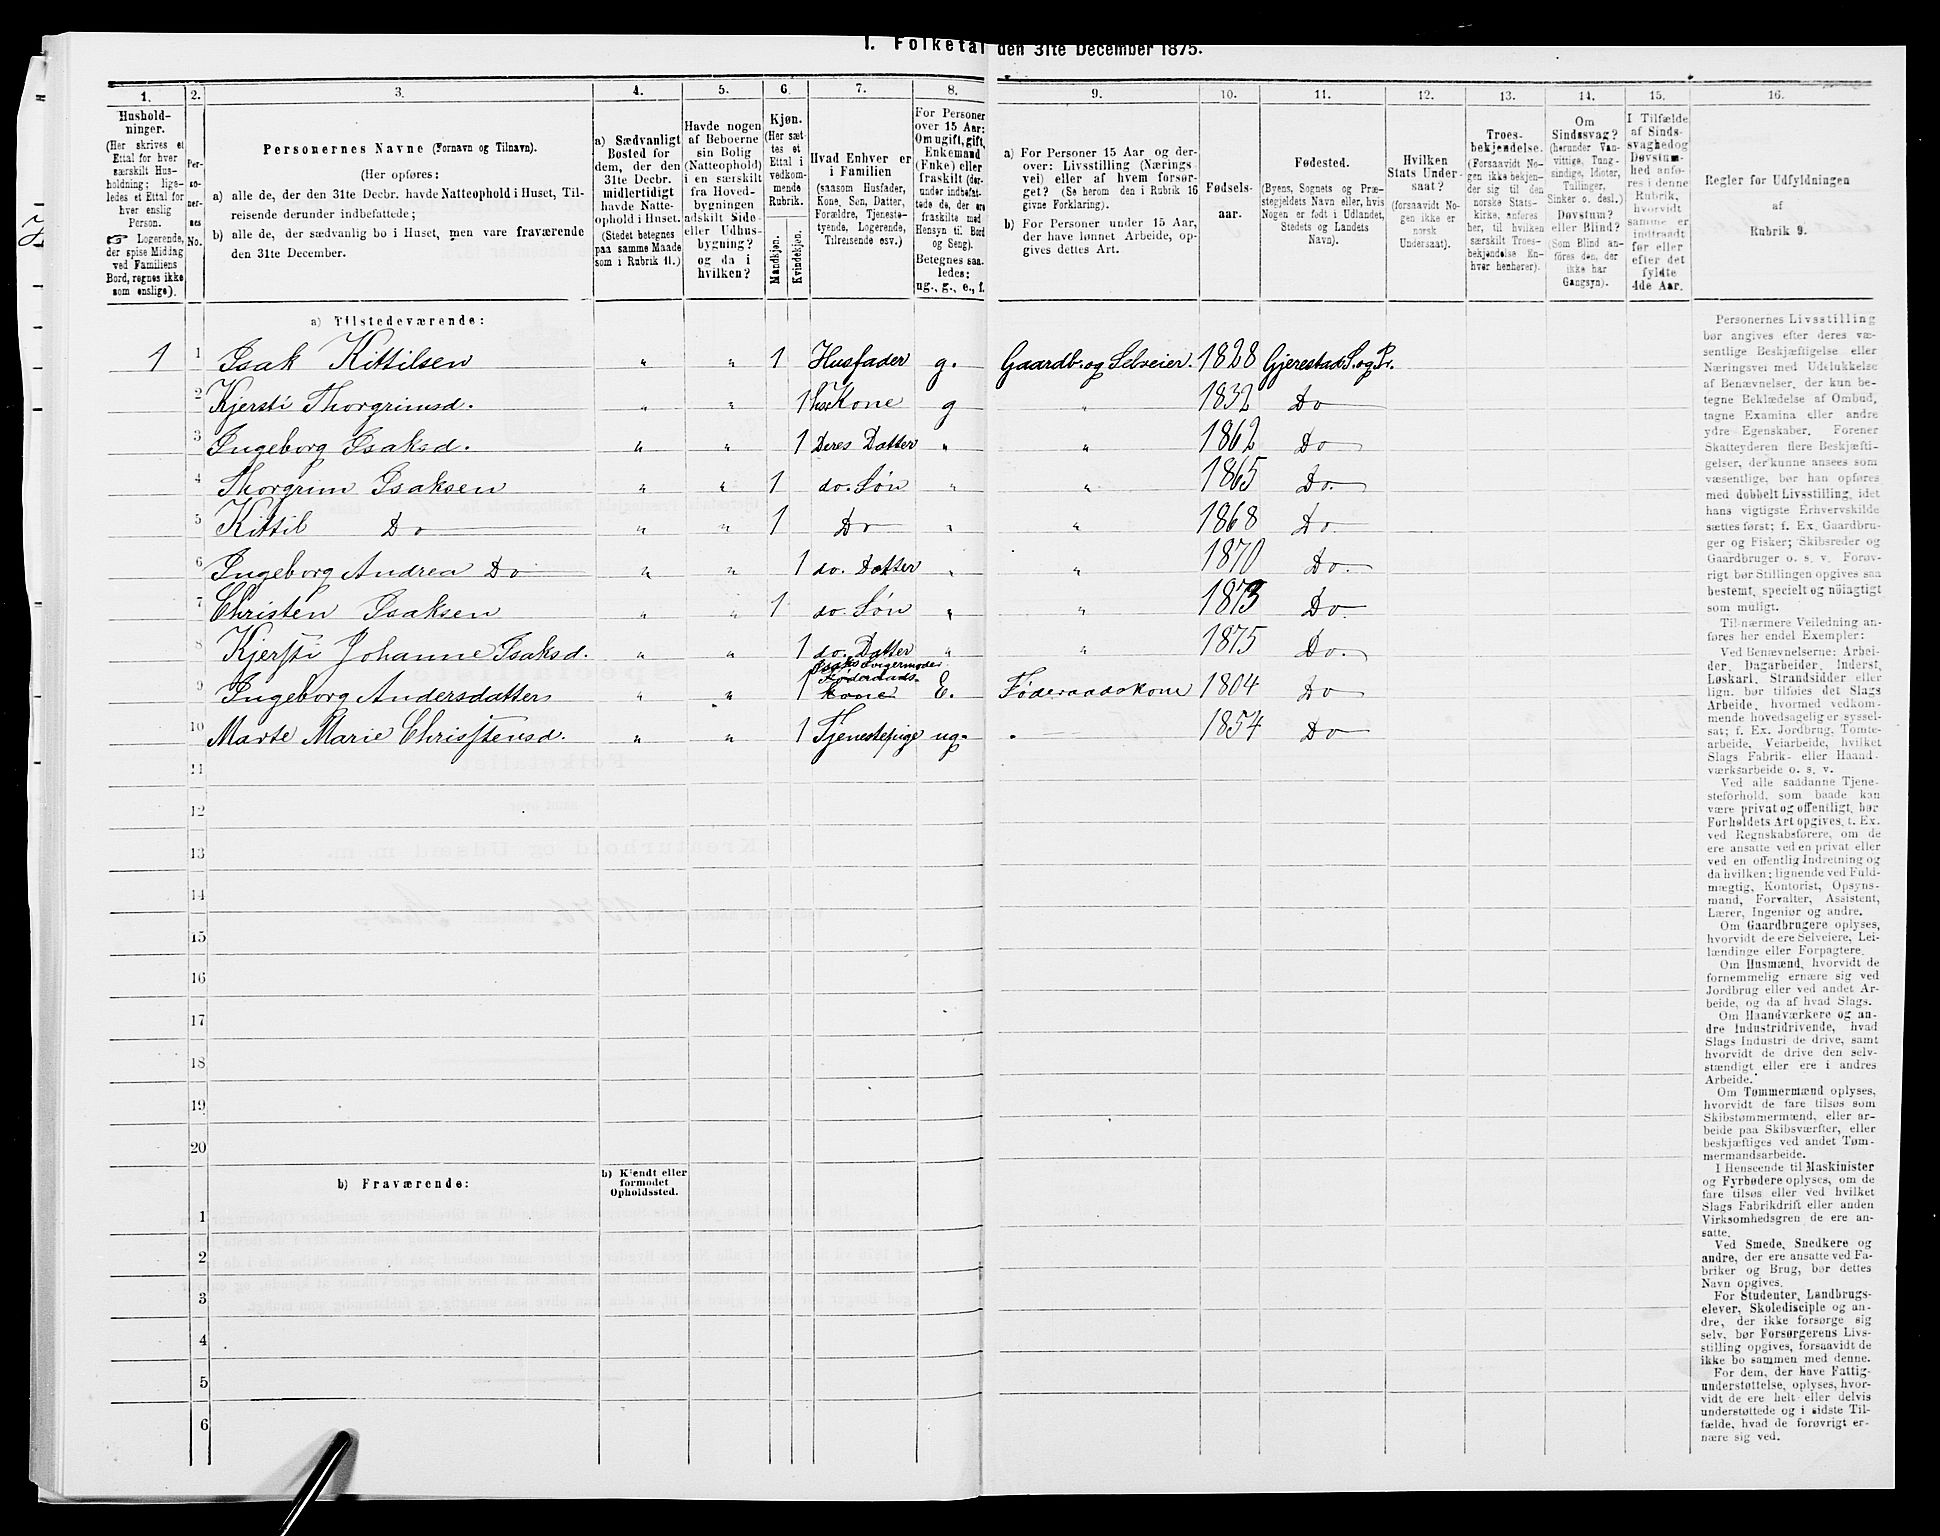 I. Folketal den 31te December 1875.
1. 2. 3. 4. 5. 6. 7. 8. 9. 10. 11. 12. 13. 14. 15. 16.
Hushold-
ninger.
(Her skrives et
Ettal for hver
særskilt Hus-
holdning; lige-
ledes et Ettal for
hver enslig
Person.
☞ Logerende,
der spise Middag
ved Familiens
Bord, regnes ikke
som enslige).
Per-
so-
ner-
nes
No.
Personernes Navne (Fornavn og Tilnavn).
(Her opføres:
a) alle de, der den 31te Decbr. havde Natteophold i Huset, Til-
reisende derunder indbefattede;
b) alle de, der sædvanlig bo i Huset, men vare fraværende
den 31te December.
a) Sædvanligt
Bosted for
dem, der den
31te Decbr.
midlertidigt
havde Natte-
ophold i Huset.
(Stedet betegnes
paa samme Maade
som i Rubrik 11.)
Havde nogen
af Beboerne
sin Bolig
(Natteophold)
i en særskilt
fra Hoved-
bygningen
adskilt Side-
eller Udhus-
bygning?
og da i
hvilken?
Kjøn.
(Her sæt-
tes et
Ettal i
vedkom-
mende
Rubrik.
Mandkjøn.
Kvindekjøn.
Hvad Enhver er
i Familien
(saasom Husfader,
Kone, Søn, Datter,
Forældre, Tjeneste-
tyende, Logerende,
Tilreisende osv.)
For Personer
over 15 Aar:
Om ugift, gift,
Enkemand
(Enke) eller
fraskilt (der-
under indbefat-
tede de, der ere
fraskilte med
Hensyn til Bord
og Seng).
Betegnes saa-
ledes:
ug., g., e., f.
a) For Personer 15 Aar og der-
over: Livsstilling (Nærings-
vei) eller af hvem forsør-
get? (Se herom den i Rubrik 16
givne Forklaring).
b) For Personer under 15 Aar,
der have lønnet Arbeide, op-
gives dettes Art.
Fødsels-
aar.
Fødested.
(Byens, Sognets og Præ-
stegjeldets Navn eller, hvis
Nogen er født i Udlandet,
Stedets og Landets
Navn).
Hvilken
Stats Under-
saat?
(forsaavidt No-
gen ikke er
norsk
Undersaat).
Troes-
bekjendelse.
(Forsaavidt No-
gen ikke bekjen-
der sig til den
norske Stats-
kirke, anføres
her, til hvilken
særskilt Troes-
bekjendelse En-
hver henhører).
Om
Sindssvag?
(herunder Van-
vittige, Tung-
sindige, Idioter,
Tullinger,
Sinker o. desl.)
Døvstum?
eller Blind?
(Som Blind an-
føres den, der
ikke har
Gangsyn).
I Tilfælde
af Sinds-
svaghed og
Døvstum-
hed anfø-
res i denne
Rubrik,
hvorvidt
samme er
indtraadt
før eller
efter det
fyldte
4de Aar.
Regler for Udfyldningen
af
Rubrik 9.
a) Tilstedeværende:
1 1 Isak Kittilsen " " 1 Husfader g. Gaardb. og Selveier. 1828 Gjerestad S. og Pr.
2 Kjersti Thorgrimsd. " " 1 hs Kone g " 1832 Do
3 Ingeborg Isaksd. " " 1 Deres Datter " " 1862 Do
4 Thorgrim Isaksen " " 1 do. Søn " " 1865 Do.
5 Kittil Do " " 1 Do " " 1868 Do
6 Ingeborg Andrea Do " " 1 do. Datter " " 1870 Do.
7 Christen Isaksen " " 1 do. Søn " " 1873 Do
8 Kjersti Johanne Isaksd. " " 1 do. Datter " " 1875 Do.
Isaks Svigermoder
9 Ingeborg Andersdatter " " 1 Føderaads-kone E. Føderaadskone 1804 Do
10 Marte Marie Christensd. " " 1 Tjenestepige ug. 1854 Do
11
12
13
14
15
16
17
18
19
20
b) Fraværende:
b) Kjendt eller
formodet
Opholdssted.
1
2
3
4
5
6
Personernes Livsstilling
bør angives efter deres væ-
sentlige Beskjæftigelse eller
Næringsvei med Udelukkelse
af Benævnelser, der kun be-
tegne Beklædelse af Ombud,
tagne Examina eller andre
ydre Egenskaber. Forener
Skatteyderen flere Beskjæfti-
gelser, der kunne ansees som
væsentlige, bør han opføres
med dobbelt Livsstilling, idet
hans vigtigste Erhvervskilde
sættes først; f. Ex. Gaardbru-
ger og Fisker; Skibsreder og
Gaardbruger o. s. v. Forøv-
rigt bør Stillingen opgives saa
bestemt, specielt og nöiagtigt
som muligt.
Til nærmere Veiledning an-
føres her endel Exempler:
Ved Benævnelserne: Arbei-
der, Dagarbeider, Inderst,
Løskarl, Strandsidder eller
lign. bør tilføies det Slags
Arbeide, hvormed vedkom-
mende hovedsagelig er syssel-
sat; f. Ex. Jordbrug, Tomte-
arbeide, Veiarbeide, hvilket
Slags Fabrik- eller Haand-
værksarbeide o. s. v.
Ved alle saadanne Tjene-
steforhold, som baade kan
være privat og offentligt, bør
Forholdets Art opgives, t. Ex.
ved Regnskabsførere, om de
ere ansatte ved en privat eller
ved en offentlig Indretning og
da hvilken; lignende ved Fuld-
mægtig, Kontorist, Opsyns-
mand, Forvalter, Assistent,
Lærer, Ingeniør og andre.
Om Gaardbrugere oplyses,
hvorvidt de ere Selveiere, Lei-
lændinge eller Forpagtere.
Om Husmænd, hvorvidt de
fornemmelig ernære sig ved
Jordbrug eller ved andet Ar-
beide, og da af hvad Slags.
Om Haandværkere og an-
dre Industridrivende, hvad
Slags Industri de drive, samt
hvorvidt de drive den selv-
stændigt eller ere i andres
Arbeide.
Om Tømmermænd oplyses,
hvorvidt de fare tilsøs som
Skibstømmermænd, eller ar-
beide paa Skibsværfter, eller
beskjæftiges ved andet Tøm-
mermandsarbeide.
I Henseende til Maskinister
og Fyrbødere oplyses, om de
fare tilsøs eller ved hvilket
Slags Fabrikdrift eller anden
Virksomhedsgren de ere an-
satte.
Ved Smede, Snedkere og
andre, der ere ansatte ved Fa-
briker og Brug, bør dettes
Navn opgives.
For Studenter, Landbrugs-
elever, Skoledisciple og an-
dre, der ikke forsørge sig
selv, bør Forsørgerens Livs-
stilling opgives, forsaavidt de
ikke bo sammen med denne.
For dem, der have Fattig-
understøttelse, oplyses, hvor-
vidt de ere helt eller delvis
understøttede og i sidste Til-
fælde, hvad de forøvrigt er-
nære sig ved.